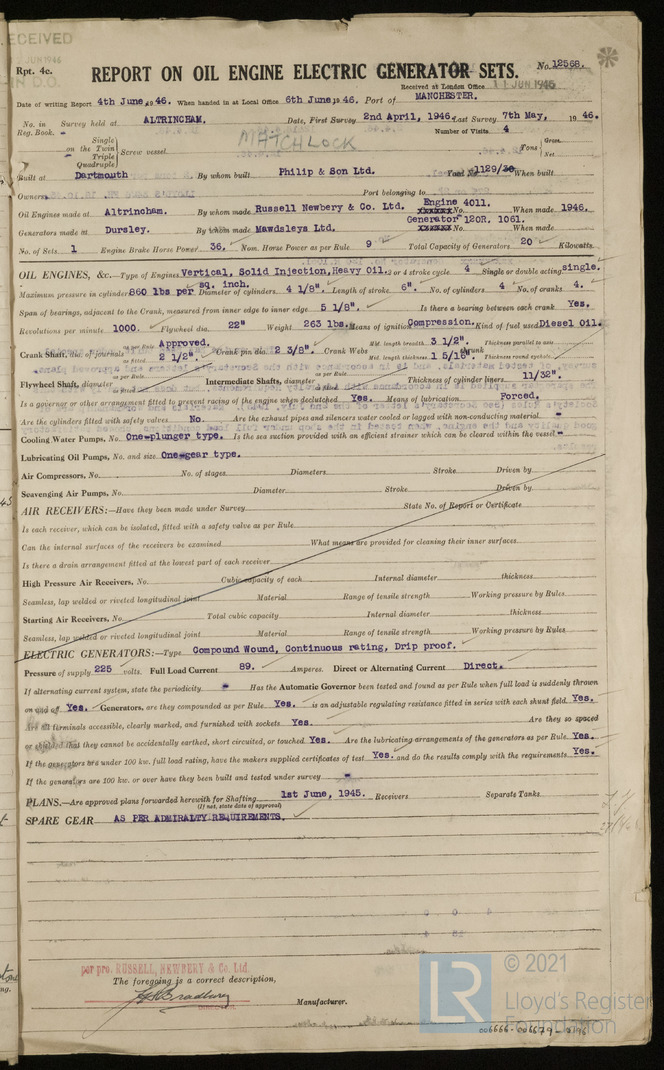 RECEIVED
JUN 1946
IN D.O.
Rpt. 4c.
REPORT ON OIL ENGINE ELECTRIC GENERATOR SETS.
No. 12568.
Received at London Office 11 JUN 1946
Date of writing Report 4th June, 1946. When handed in at Local Office 6th June, 1946. Port of MANCHESTER.
No. in Reg. Book. - Survey held at ALTRINCHAM. Date, First Survey 2nd April, 1946. Last Survey 7th May, 1946.
Number of Visits 4
MATCHLOCK
on the Single Twin Triple Quadruple Screw vessel. Tons Gross Net
Built at Dartmouth By whom built Philip & Son Ltd. Yard No. 1129/30 When built
Owners Port belonging to
Oil Engines made at Altrincham. By whom made Russell Newbery & Co. Ltd. Engine No. 4011. When made 1946.
Generators made at Dursley. By whom made Mawdsleys Ltd. Generator No. 120R, 1061. When made
No. of Sets 1 Engine Brake Horse Power 36. Nom. Horse Power as per Rule 9 Total Capacity of Generators 20 Kilowatts.
OIL ENGINES, &c.—Type of Engines Vertical, Solid Injection, Heavy Oil. 2 or 4 stroke cycle 4 Single or double acting single.
Maximum pressure in cylinders 860 lbs per sq. inch. Diameter of cylinders 4 1/8". Length of stroke 6". No. of cylinders 4 No. of cranks 4.
Span of bearings, adjacent to the Crank, measured from inner edge to inner edge 5 1/8". Is there a bearing between each crank Yes.
Revolutions per minute 1000. Flywheel dia. 22" Weight 263 lbs. Means of ignition Compression. Kind of fuel used Diesel Oil.
Crank Shaft, dia. of journals as per Rule Approved. as fitted 2 1/2". Crank pin dia. 2 3/8". Crank Webs Mid. length breadth 3 1/2". Mid. length thickness 1 5/16" Thickness parallel to axis Thickness round eyehole
Flywheel Shaft, diameter as per Rule as fitted Intermediate Shafts, diameter as per Rule as fitted Thickness of cylinder liners 11/32".
Is a governor or other arrangement fitted to prevent racing of the engine when declutched Yes. Means of lubrication Forced.
Are the cylinders fitted with safety valves No Are the exhaust pipes and silencers water cooled or lagged with non-conducting material -
Cooling Water Pumps, No. One-plunger type. Is the sea suction provided with an efficient strainer which can be cleared within the vessel -
Lubricating Oil Pumps, No. and size One-gear type.
Air Compressors, No. No. of stages Diameters Stroke Driven by
Scavenging Air Pumps, No. Diameter Stroke Driven by
AIR RECEIVERS:—Have they been made under Survey State No. of Report or Certificate
Is each receiver, which can be isolated, fitted with a safety valve as per Rule
Can the internal surfaces of the receivers be examined What means are provided for cleaning their inner surfaces
Is there a drain arrangement fitted at the lowest part of each receiver
High Pressure Air Receivers, No. Cubic capacity of each Internal diameter thickness
Seamless, lap welded or riveted longitudinal joint Material Range of tensile strength Working pressure by Rules
Starting Air Receivers, No. Total cubic capacity Internal diameter thickness
Seamless, lap welded or riveted longitudinal joint Material Range of tensile strength Working pressure by Rules
ELECTRIC GENERATORS:—Type Compound Wound, Continuous rating, Drip proof.
Pressure of supply 225 volts. Full Load Current 89. Amperes. Direct or Alternating Current Direct.
If alternating current system, state the periodicity - Has the Automatic Governor been tested and found as per Rule when full load is suddenly thrown
on and off Yes. Generators, are they compounded as per Rule Yes. is an adjustable regulating resistance fitted in series with each shunt field Yes.
Are all terminals accessible, clearly marked, and furnished with sockets Yes. Are they so spaced
or shielded that they cannot be accidentally earthed, short circuited, or touched Yes. Are the lubricating arrangements of the generators as per Rule Yes.
If the generators are under 100 kw. full load rating, have the makers supplied certificates of test Yes. and do the results comply with the requirements Yes.
If the generators are 100 kw. or over have they been built and tested under survey -
PLANS.—Are approved plans forwarded herewith for Shafting 1st June, 1945. Receivers Separate Tanks
(If not, state date of approval)
SPARE GEAR AS PER ADMIRALTY REQUIREMENTS.
per pro. RUSSELL, NEWBERY & Co. Ltd.
The foregoing is a correct description,
Bradbury
DIRECTOR
Manufacturer.
LR
© 2021
Lloyd's Register
Foundation
006666-006679-0196